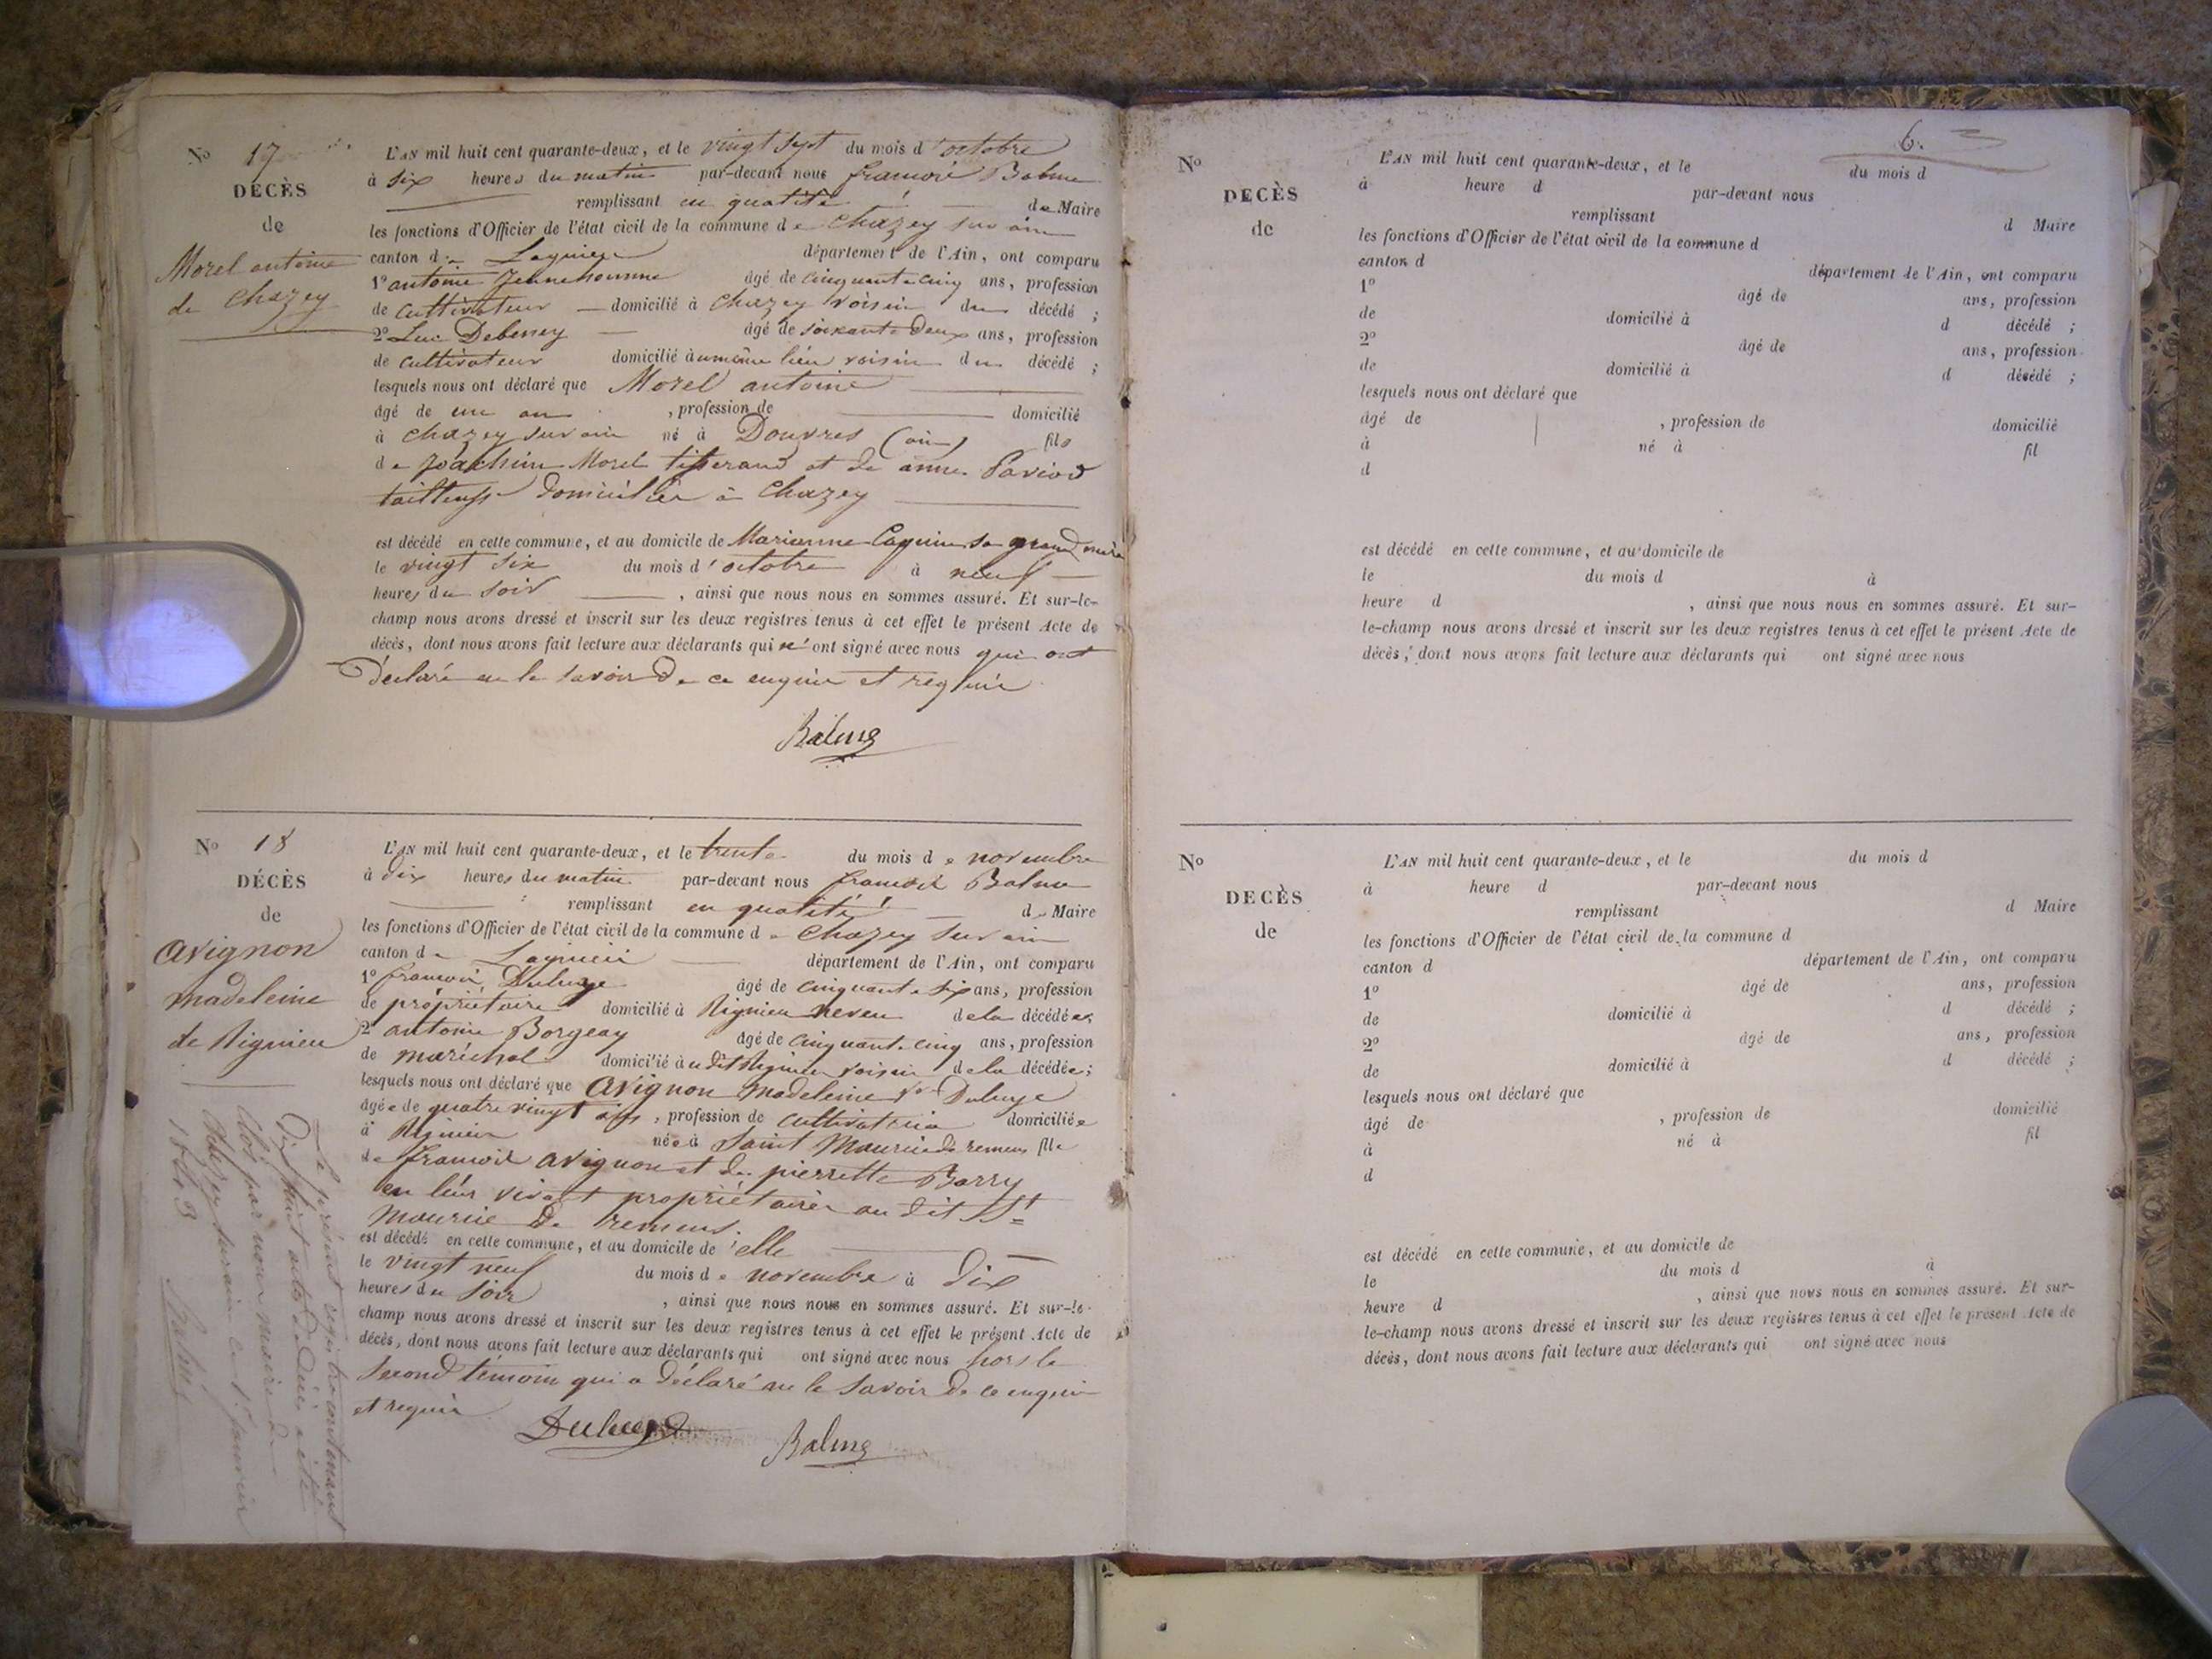 N° 17
DÉCÈS
de
Morel antoine
de Chazey
L'AN mil huit cent quarante-deux, et le vingt Sept du mois d'octobre
à Six heures du matin par-devant nous françois Balme
remplissant en qualité de Maire
les fonctions d'Officier de l'état civil de la commune de Chazey sur ain
canton de Lagnieu département de l'Ain, ont comparu
1° antoine Jeunehomme âgé de cinquante cinq ans, profession
de cultivateur domicilié à Chazey voisin du décédé ;
2° Luc Debeney âgé de soixante Deux ans, profession
de cultivateur domicilié au même lieu voisin du décédé ;
lesquels nous ont déclaré que Morel antoine
âgé de un an , profession de domicilié
à Chazey sur ain né à Douvres (ain) fils
de Joachim Morel tisserand et de anne Paviod
tailleuse domiciliés à Chazey
est décédé en cette commune, et au domicile de Marianne sa grand mère
le vingt Six du mois d'octobre à neuf
heures du Soir , ainsi que nous nous en sommes assuré. Et sur-le-
champ nous avons dressé et inscrit sur les deux registres tenus à cet effet le présent Acte de
décès, dont nous avons fait lecture aux déclarants qui n'ont signé avec nous qui ont
Déclaré ne le savoir De ce enquis et requis
Balme
N° 18
DÉCÈS
de
avignon
madeleine
de Rignieu
L'AN mil huit cent quarante-deux, et le trente du mois de novembre
à dix heures du matin par-devant nous françois Balme
remplissant en qualité de Maire
les fonctions d'Officier de l'état civil de la commune de Chazey sur ain
canton de Lagnieu département de l'Ain, ont comparu
1° françois Duluye âgé de cinquante six ans, profession
de propriétaire domicilié à Rignieu neveu de la décédée ;
2° antoine Borgeay âgé de cinquante cinq ans, profession
de maréchal domicilié au dit Rignieu voisin de la décédée ;
lesquels nous ont déclaré que avignon madeleine Ve Duluye
âgée de quatre vingt ans , profession de cultivatrice domiciliée
à Rignieu née à Saint Maurice de remens fille
de françois avignon et de pierrette Barry
en leur vivant propriétaires au dit St
Maurice De remens.
est décédé en cette commune, et au domicile de elle
le vingt neuf du mois de novembre à dix
heures du Soir , ainsi que nous nous en sommes assuré. Et sur-le-
champ nous avons dressé et inscrit sur les deux registres tenus à cet effet le présent Acte de
décès, dont nous avons fait lecture aux déclarants qui ont signé avec nous hors le
Second témoin qui a Déclaré ne le Savoir De ce enquis
et requis
Duluye Balme
Le présent registre contenant
Dix huit actes de Décès a été
clos par nous maire de
Chazey sur ain ce 1er Janvier
1843 Balme
6.
N°
DECÈS
de
L'AN mil huit cent quarante-deux, et le du mois d
à heure d par-devant nous
remplissant d Maire
les fonctions d'Officier de l'état civil de la commune d
canton d département de l'Ain, ont comparu
1° âgé de ans, profession
de domicilié à d décédé ;
2° âgé de ans, profession
de domicilié à d décédé ;
lesquels nous ont déclaré que
âgé de , profession de domicilié
à né à fil
d
est décédé en cette commune, et au domicile de
le du mois d à
heure d , ainsi que nous nous en sommes assuré. Et sur-
le-champ nous avons dressé et inscrit sur les deux registres tenus à cet effet le présent Acte de
décès, dont nous avons fait lecture aux déclarants qui ont signé avec nous
N°
DECÈS
de
L'AN mil huit cent quarante-deux, et le du mois d
à heure d par-devant nous
remplissant d Maire
les fonctions d'Officier de l'état civil de la commune d
canton d département de l'Ain, ont comparu
1° âgé de ans, profession
de domicilié à d décédé ;
2° âgé de ans, profession
de domicilié à d décédé ;
lesquels nous ont déclaré que
âgé de , profession de domicilié
à né à fil
d
est décédé en cette commune, et au domicile de
le du mois d à
heure d , ainsi que nous nous en sommes assuré. Et sur-
le-champ nous avons dressé et inscrit sur les deux registres tenus à cet effet le présent Acte de
décès, dont nous avons fait lecture aux déclarants qui ont signé avec nous